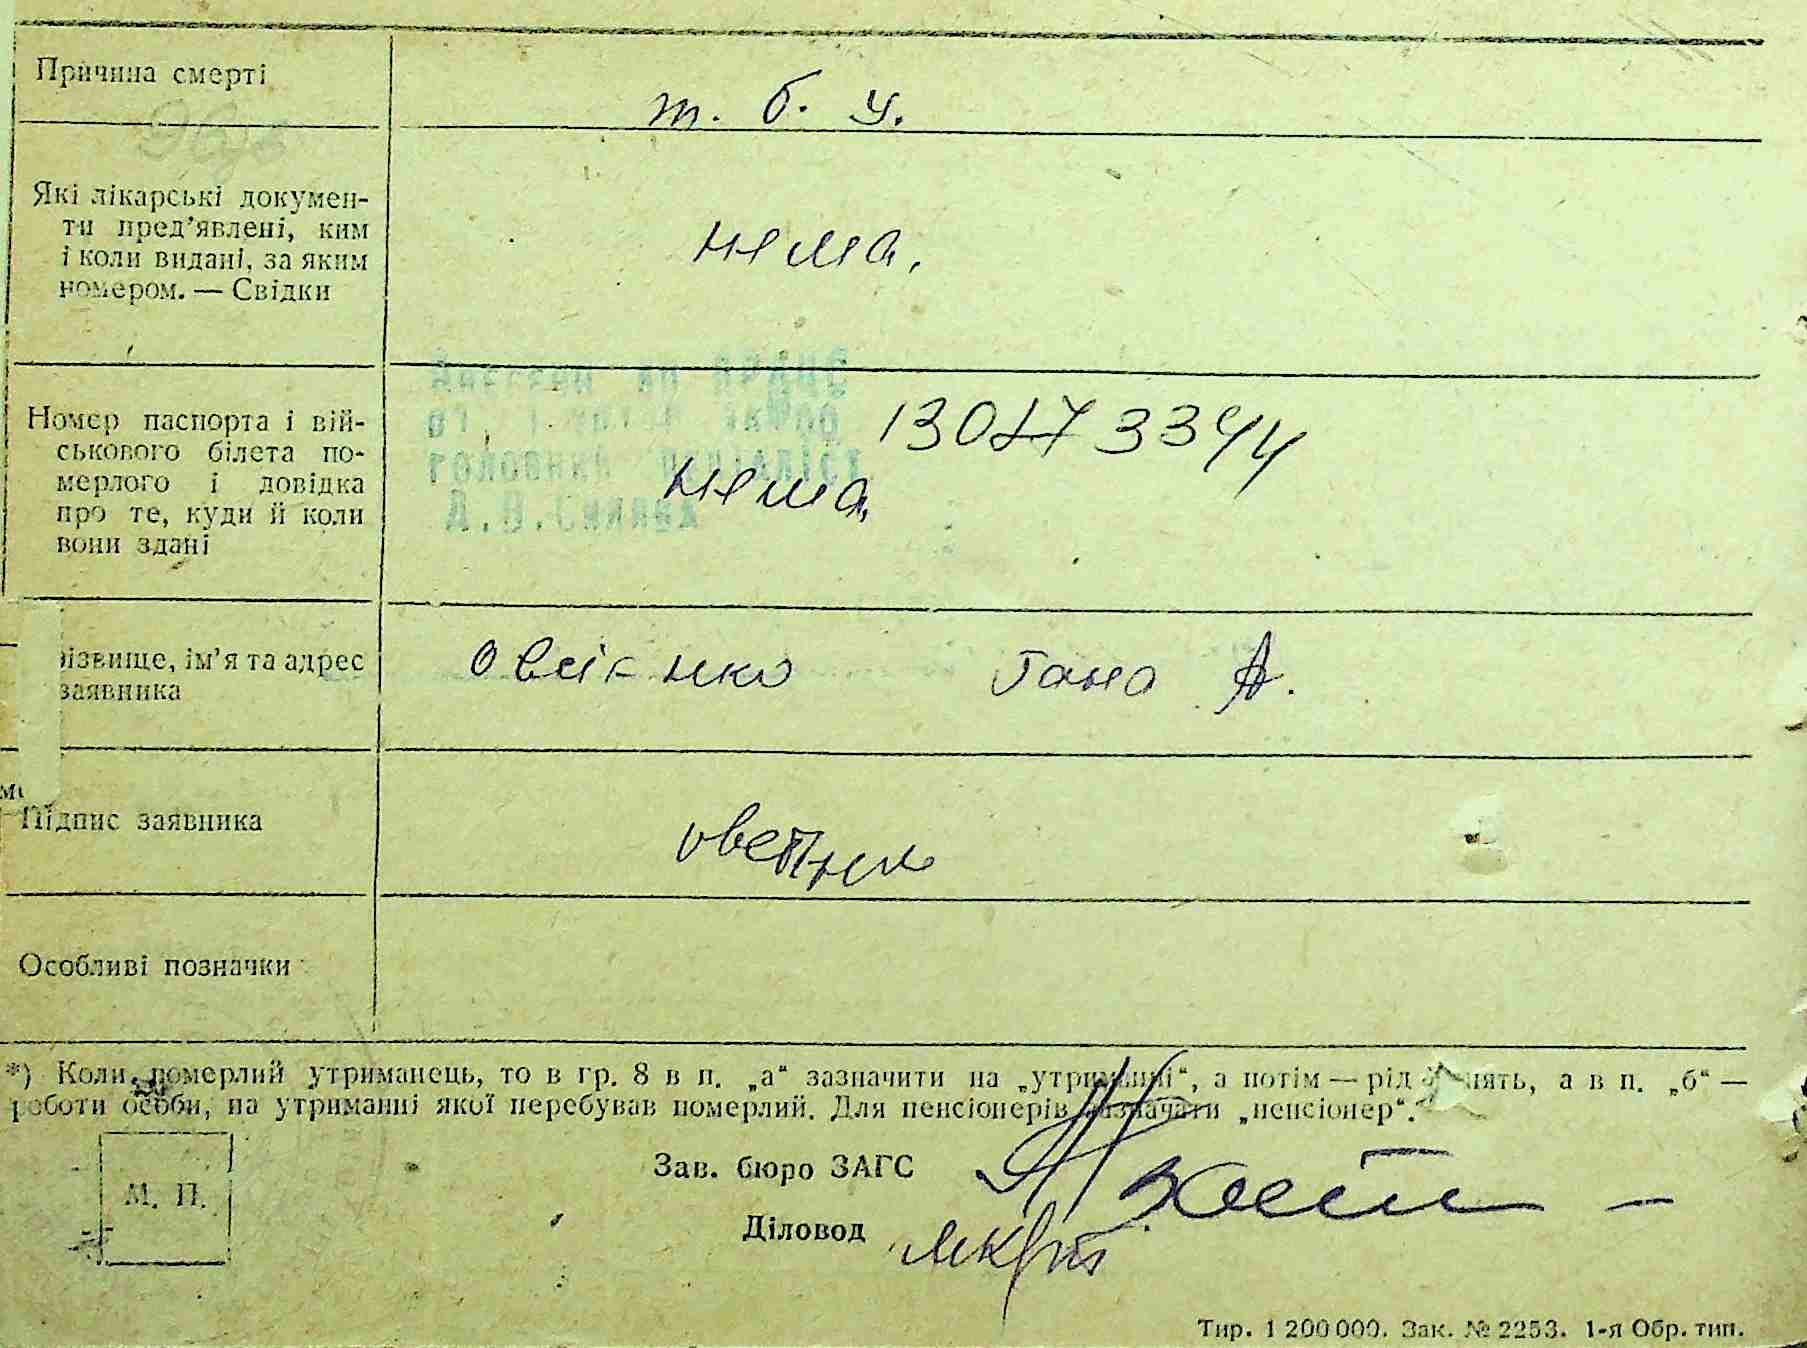 Причина смерті
т. б. у.
Які лікарські докумен-
ти пред’явлені, ким
і коли видані, за яким
номером. — Свідки
нема.
Номер паспорта і вій-
ськового білета по-
мерлого і довідка
про те, куди й коли
вони здані
головний
нема,
ізвище, ім’я та адрес
заявника
Гана А.
Підпис заявника
Особливі позначки
*) Коли померлий утриманець, то в гр. 8 в п. „а“ зазначити на „утриманні“, а потім — рід занять, а в п. „б“ —
роботи особи, на утриманні якої перебував померлий. Для пенсіонерів зазначати „пенсіонер“.
М. П.
Зав. бюро ЗАГС
Діловод
Тир. 1 200 000. Зак. № 2253. 1-я Обр. тип.